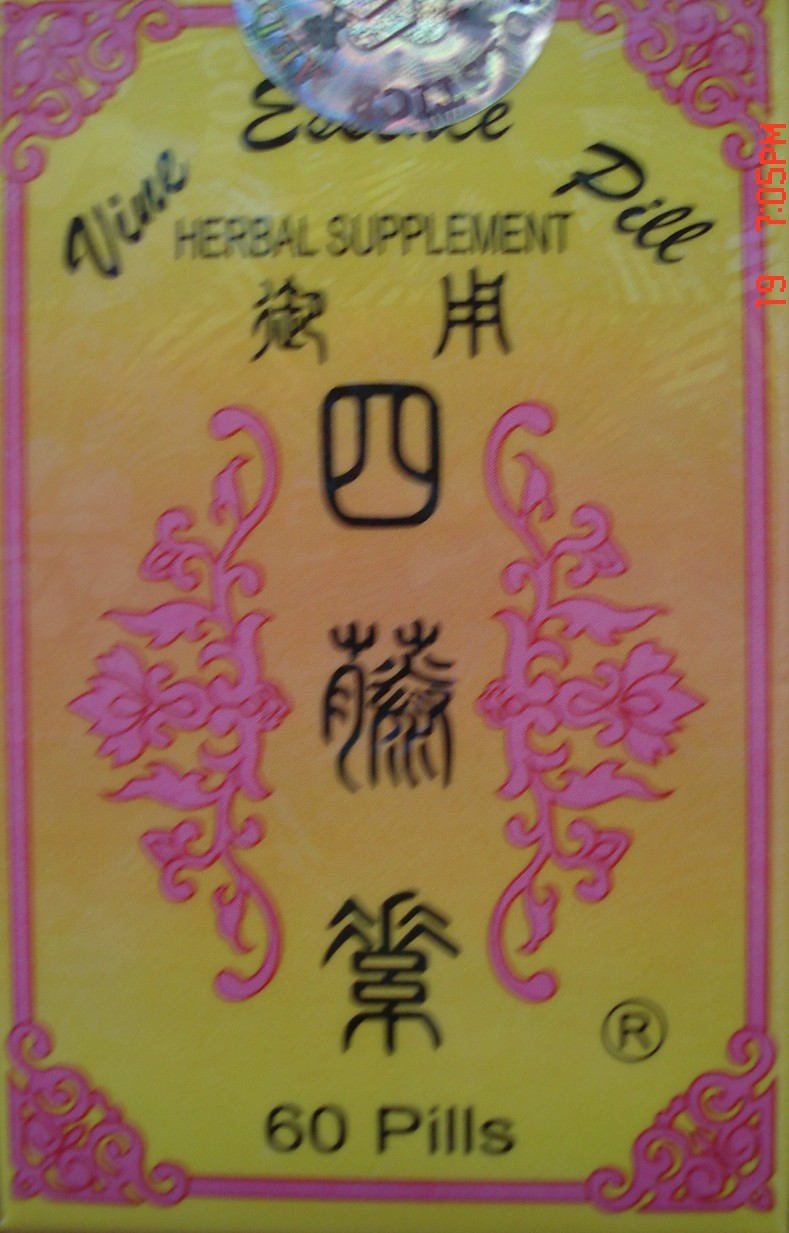 Vine Essence Pill
HERBAL SUPPLEMENT
御用
四
藤
®
60 Pills
19 7:05PM